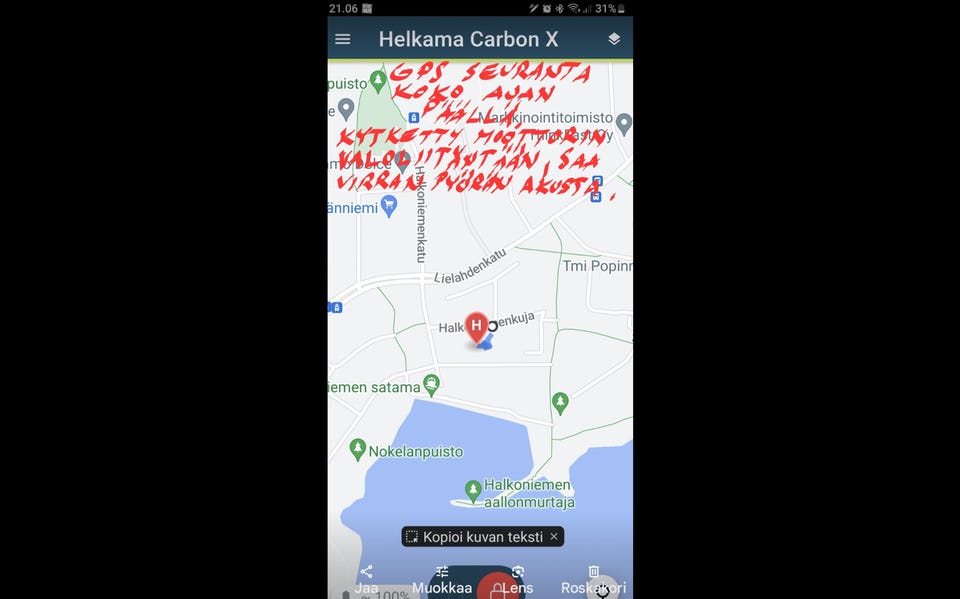 21.06
31%
Helkama Carbon X
GPS SEURANTA
KOKO AJAN
PÄÄLLÄ.
KYTKETTY MOOTTORIN
VALOLIITÄNTÄÄN, SAA
VIRRAN PYÖRÄN AKUSTA.
puisto
e
Markkinointitoimisto
Oy
änniemi
Halkoniemenkatu
Lielahdenkatu
Tmi Popinn
H
Halk
enkuja
iemen satama
Nokelanpuisto
Halkoniemen
aallonmurtaja
Kopioi kuvan teksti ×
Jaa
Muokkaa
Lens
Roskakori
~ 100%